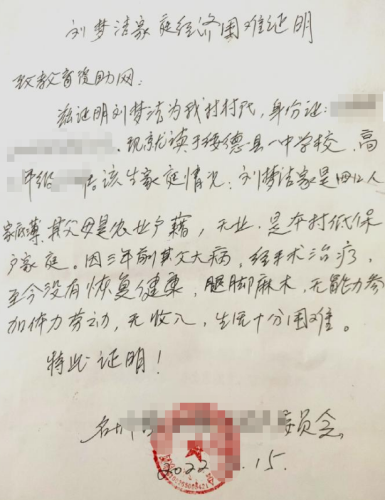 刘梦洁家庭经济困难证明
致教育资助网:
兹证明刘梦洁为我村村民,身份证:
,现就读于绥德县一中学校,高
年级 该生家庭情况:刘梦洁家是四口人
家庭,其父母是农业户籍,无业,是本村低保
户家庭。因三年前其父大病,经手术治疗,
至今没有恢复健康,腿脚麻木,无能力参
加体力劳动,无收入,生活十分困难。
特此证明!
委员会
2022 .15.